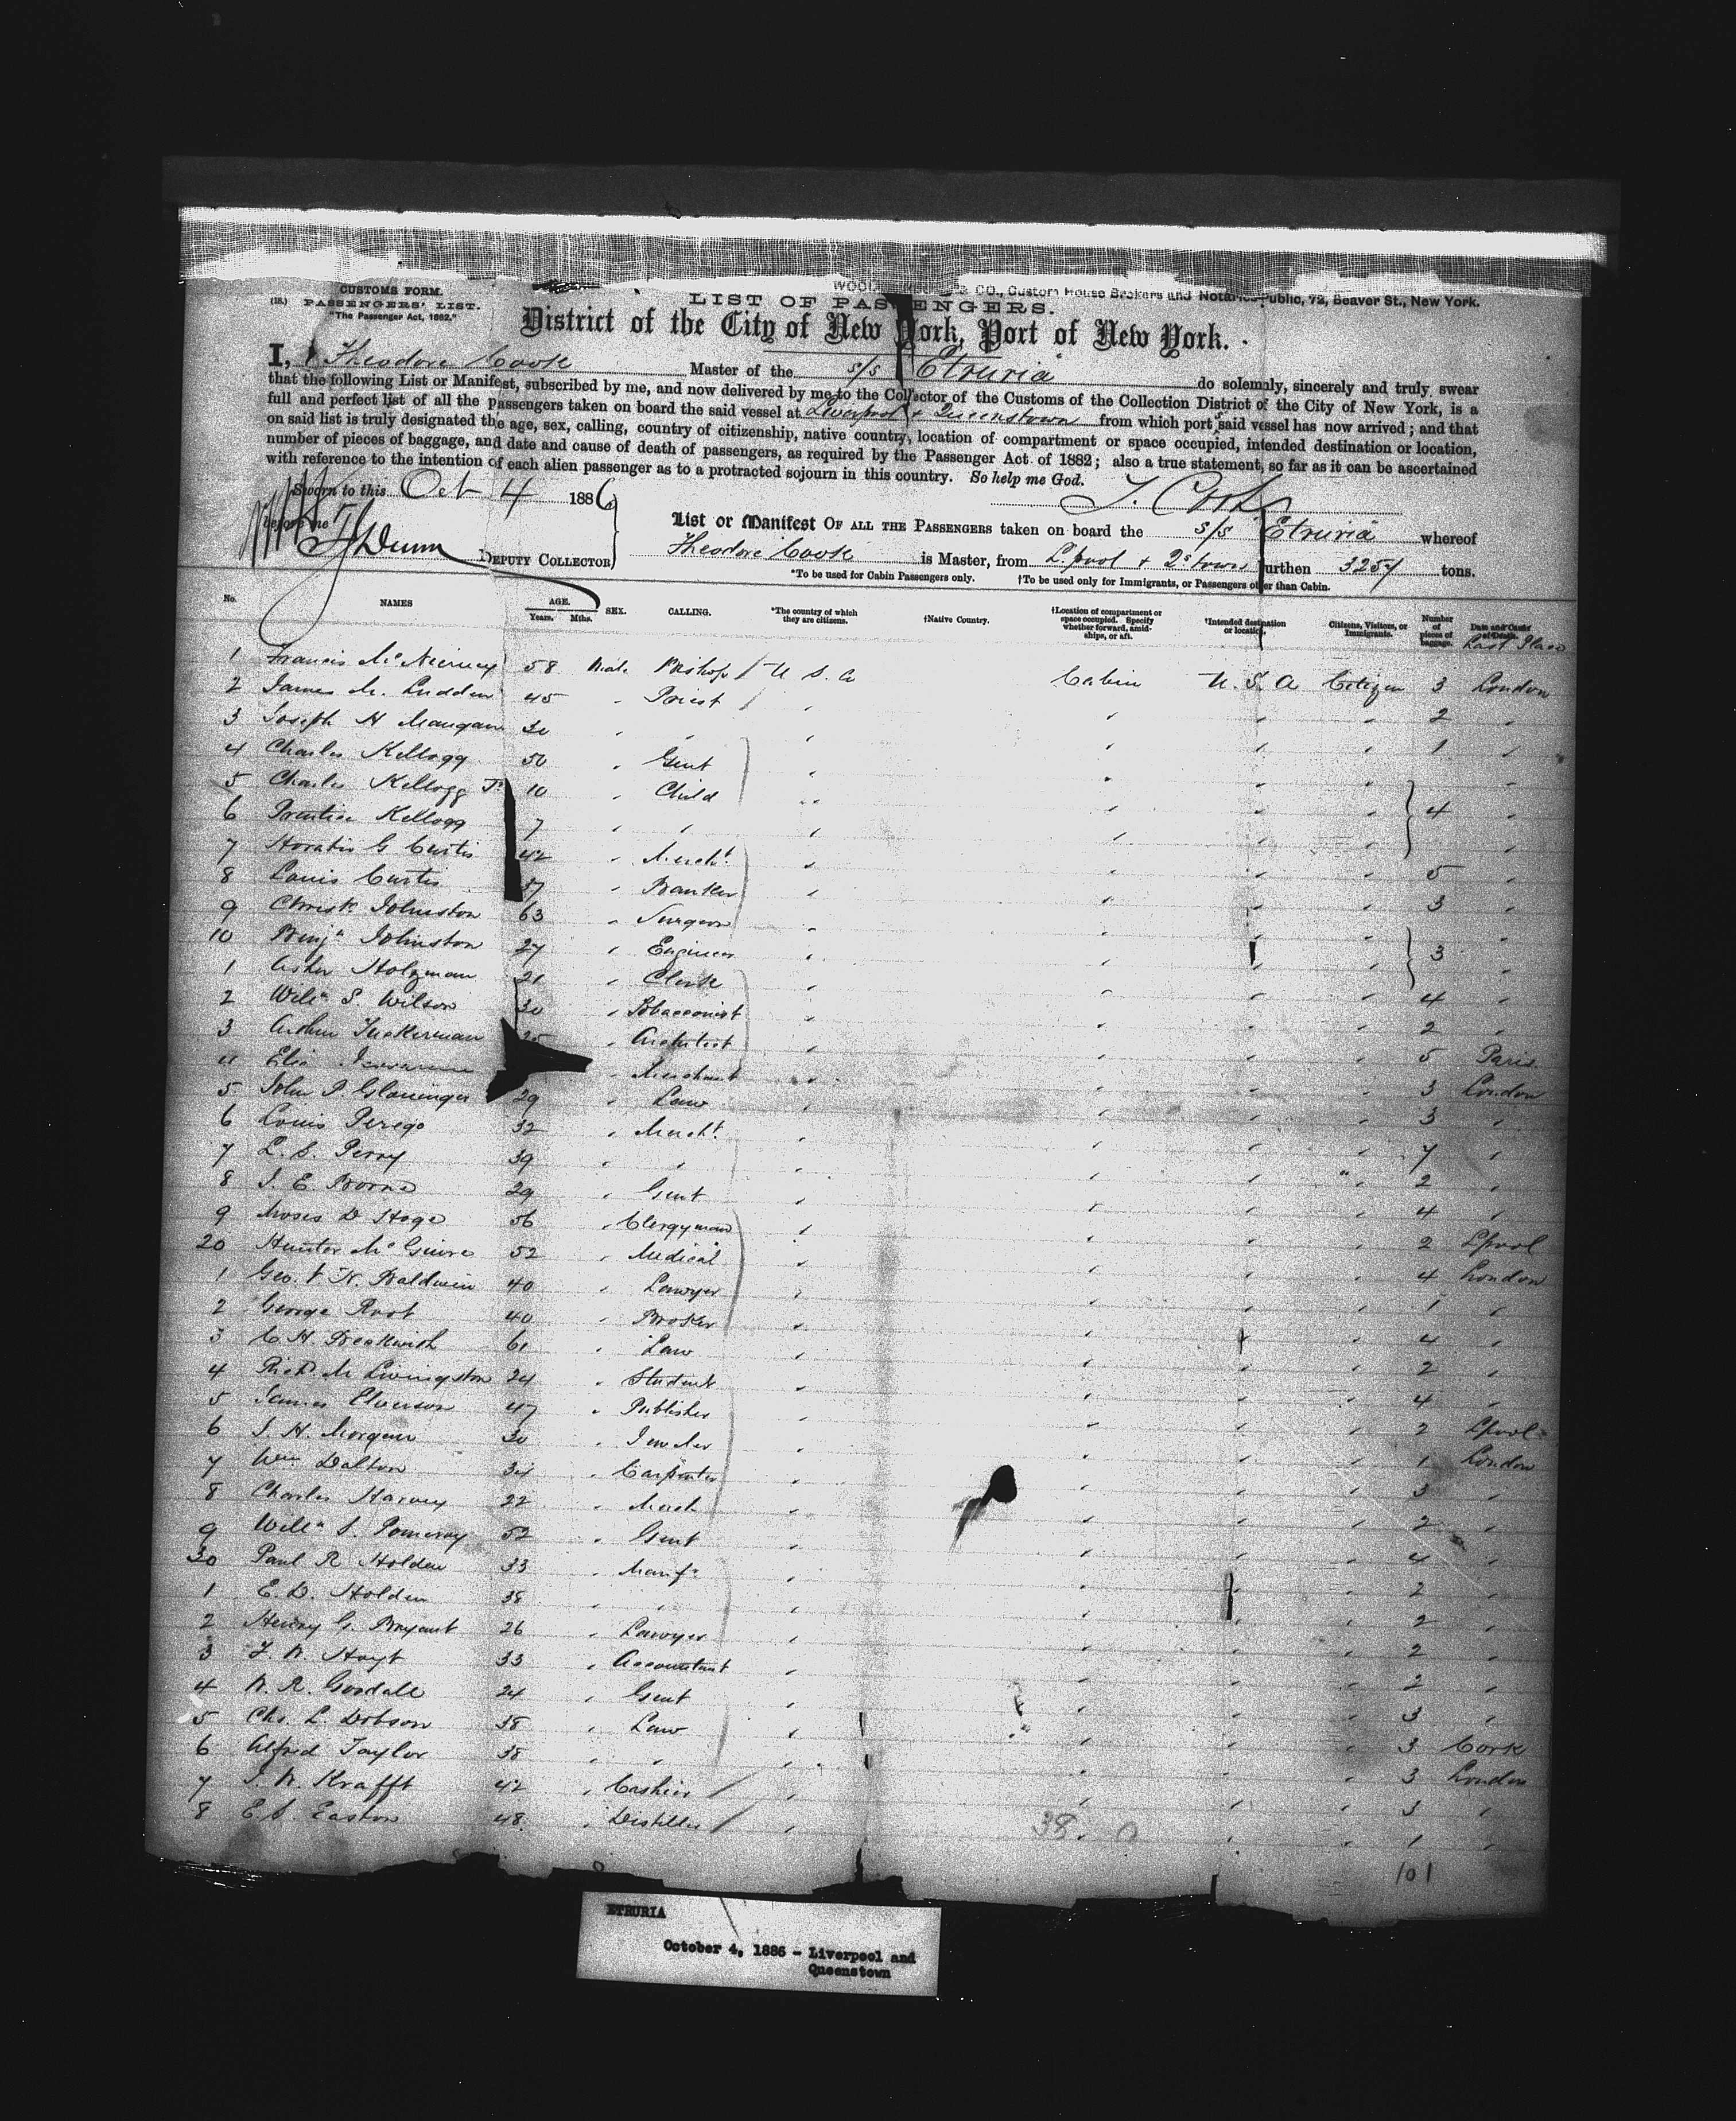 CUSTOMS FORM.
(18.) PASSENGERS' LIST.
"The Passenger Act, 1882."
& CO., Custom House Brokers and Notaries Public, 72, Beaver St., New York.
LIST OF PASSENGERS.
District of the City of New York, Port of New York.
I, Theodore Cook Master of the s/s Etruria do solemnly, sincerely and truly swear
that the following List or Manifest, subscribed by me, and now delivered by me to the Collector of the Customs of the Collection District of the City of New York, is a
full and perfect list of all the passengers taken on board the said vessel at Liverpool + Queenstown from which port said vessel has now arrived; and that
on said list is truly designated the age, sex, calling, country of citizenship, native country, location of compartment or space occupied, intended destination or location,
number of pieces of baggage, and date and cause of death of passengers, as required by the Passenger Act of 1882; also a true statement, so far as it can be ascertained
with reference to the intention of each alien passenger as to a protracted sojourn in this country. So help me God.
Sworn to this Oct 4 1886
T. Cook
before me
DEPUTY COLLECTOR
List or Manifest OF ALL THE PASSENGERS taken on board the s/s Etruria whereof
Theodore Cook is Master, from L.pool + Qs town burthen 3257 tons.
*To be used for Cabin Passengers only. †To be used only for Immigrants, or Passengers other than Cabin.
No. NAMES AGE. Years. Mths. SEX. CALLING. *The country of which they are citizens. †Native Country. †Location of compartment or space occupied. Specify whether forward, amidships, or aft. †Intended destination or location. Citizens, Visitors, or Immigrants. Number of pieces of baggage. Date and Cause of Death. Last Place
1 Francis McNeirney 58 Male Bishop U S A Cabin U.S.A Citizen 3 London
2 James M. Ludden 45 " Priest " " " " 2 "
3 Joseph H Mangan 30 " " " " " " 1 "
4 Charles Kellogg 50 " Gent " " " " "
5 Charles Kellogg Jr 10 " Child " " " " 4 "
6 Prentice Kellogg 7 " " " " " " "
7 Horatio G Curtis 42 " Mercht " " " " 5 "
8 Louis Curtis 37 " Banker " " " " 3 "
9 Christr Johnston 63 " Surgeon " " " " "
10 Benjn Johnston 27 " Engineer " " " " 3 "
1 Asher Holzman 21 " Clerk " " " " 4 "
2 Willm S. Wilson 30 " Tobacconist " " " " 2 "
3 Arthur Tuckerman " Architect " " " " 5 Paris
4 " Merchant " " " " 3 London
5 John P. Gloninger 29 " Law " " " " 3 "
6 Louis Perego 32 " Mercht " " " " 7 "
7 L. S. Perry 39 " " " " " " 2 "
8 J. E. Borne 29 " Gent " " " " 4 "
9 Moses D Hoge 56 " Clergyman " " " " 2 Lpool
20 Hunter McGuire 52 " Medical " " " " 4 London
1 Geo. V. N. Baldwin 40 " Lawyer " " " " 1 "
2 George Root 40 " Broker " " " " 4 "
3 C. H. 61 " Law " " " " 2 "
4 Richd M Livingston 24 " Student " " " " 4 "
5 James Elverson 47 " Publisher " " " " 2 Lpool
6 J. H. Morgan 30 " Jeweler " " " " 1 London
7 Wm Dalton 34 " Carpenter " " " " 3 "
8 Charles Harvey 22 " Merch " " " " 2 "
9 Willm S. Pomeroy 52 " Gent " " " " 4 "
30 Paul R Holden 33 " Manfr " " " " 2 "
1 E. D. Holden 38 " " " " " " 2 "
2 Henry G. Bryant 26 " Lawyer " " " " 2 "
3 F. W. Hoyt 33 " Accountant " " " " 2 "
4 W. R. Goodall 24 " Gent " " " " 3 "
5 Chs. L. Dobson 38 " Law " " " " 3 Cork
6 Alfred Taylor 38 " " " " " " 3 London
7 J. W. Krafft 42 " Cashier " " " " 3 "
8 E. S. Easton 48 " Distiller " " " " 1 "
38. 0
101
ETRURIA
October 4, 1886 - Liverpool and
Queenstown